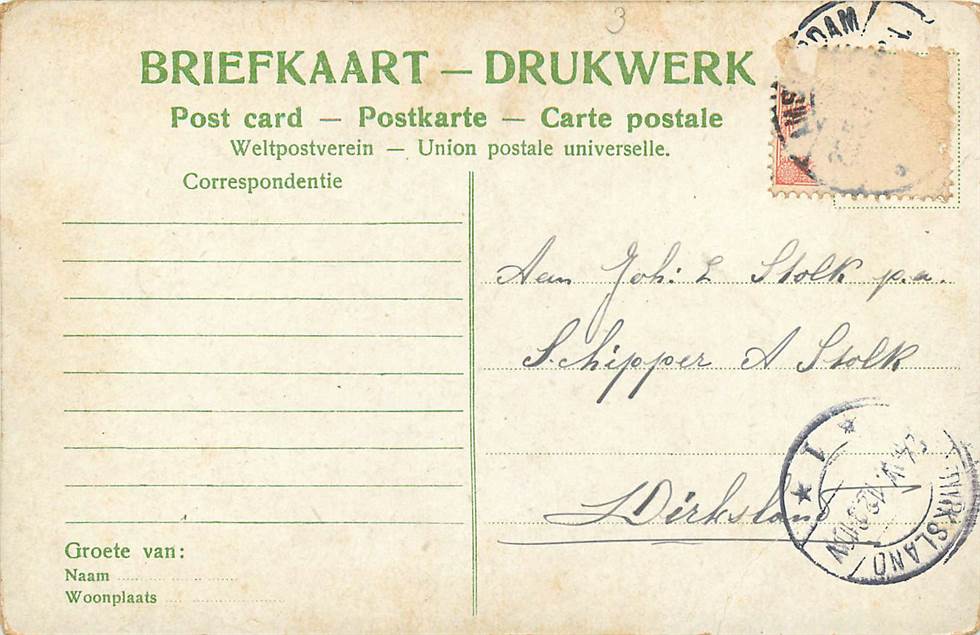 3
BRIEFKAART — DRUKWERK
Post card — Postkarte — Carte postale
Weltpostverein — Union postale universelle.
Correspondentie
Aan Joh: L Stolk p.a.
Schipper A Stolk
Dirksland
Groete van:
Naam
Woonplaats
DIRKSLAND